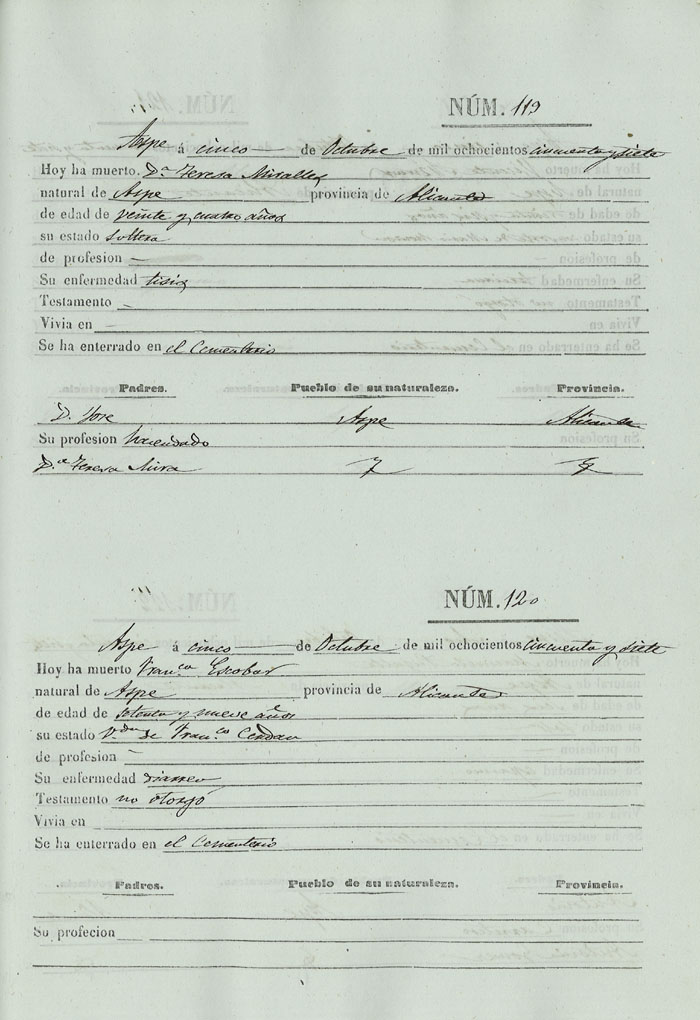 NÚM. 119
Aspe á cinco de Octubre de mil ochocientos cincuenta y siete
Hoy ha muerto. D.ª Teresa Miralles
natural de Aspe provincia de Alicante
de edad de veinte y cuatro años
su estado soltera
de profesion —
Su enfermedad tisis
Testamento —
Vivia en —
Se ha enterrado en el Cementerio
Padres. Pueblo de su naturaleza. Provincia.
D. Jose Aspe Alicante
Su profesion hacendado
D.ª Teresa Mira
NÚM. 120
Aspe á cinco de Octubre de mil ochocientos cincuenta y siete
Hoy ha muerto Fran.ca Escobar
natural de Aspe provincia de Alicante
de edad de setenta y nueve años
su estado V.da de Fran.co Cerdan
de profesion —
Su enfermedad diarrea
Testamento no otorgó
Vivia en
Se ha enterrado en el Cementerio
Padres. Pueblo de su naturaleza. Provincia.
Su profecion